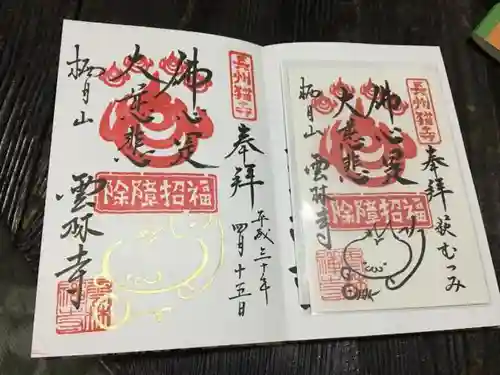 長州猫寺
奉拝
平成三十年
四月十五日
佛心是
大慈悲
除障招福
栖月山
雲林寺
長州猫寺
奉拝
萩むつみ
佛心是
大慈悲
除障招福
栖月山
雲林寺